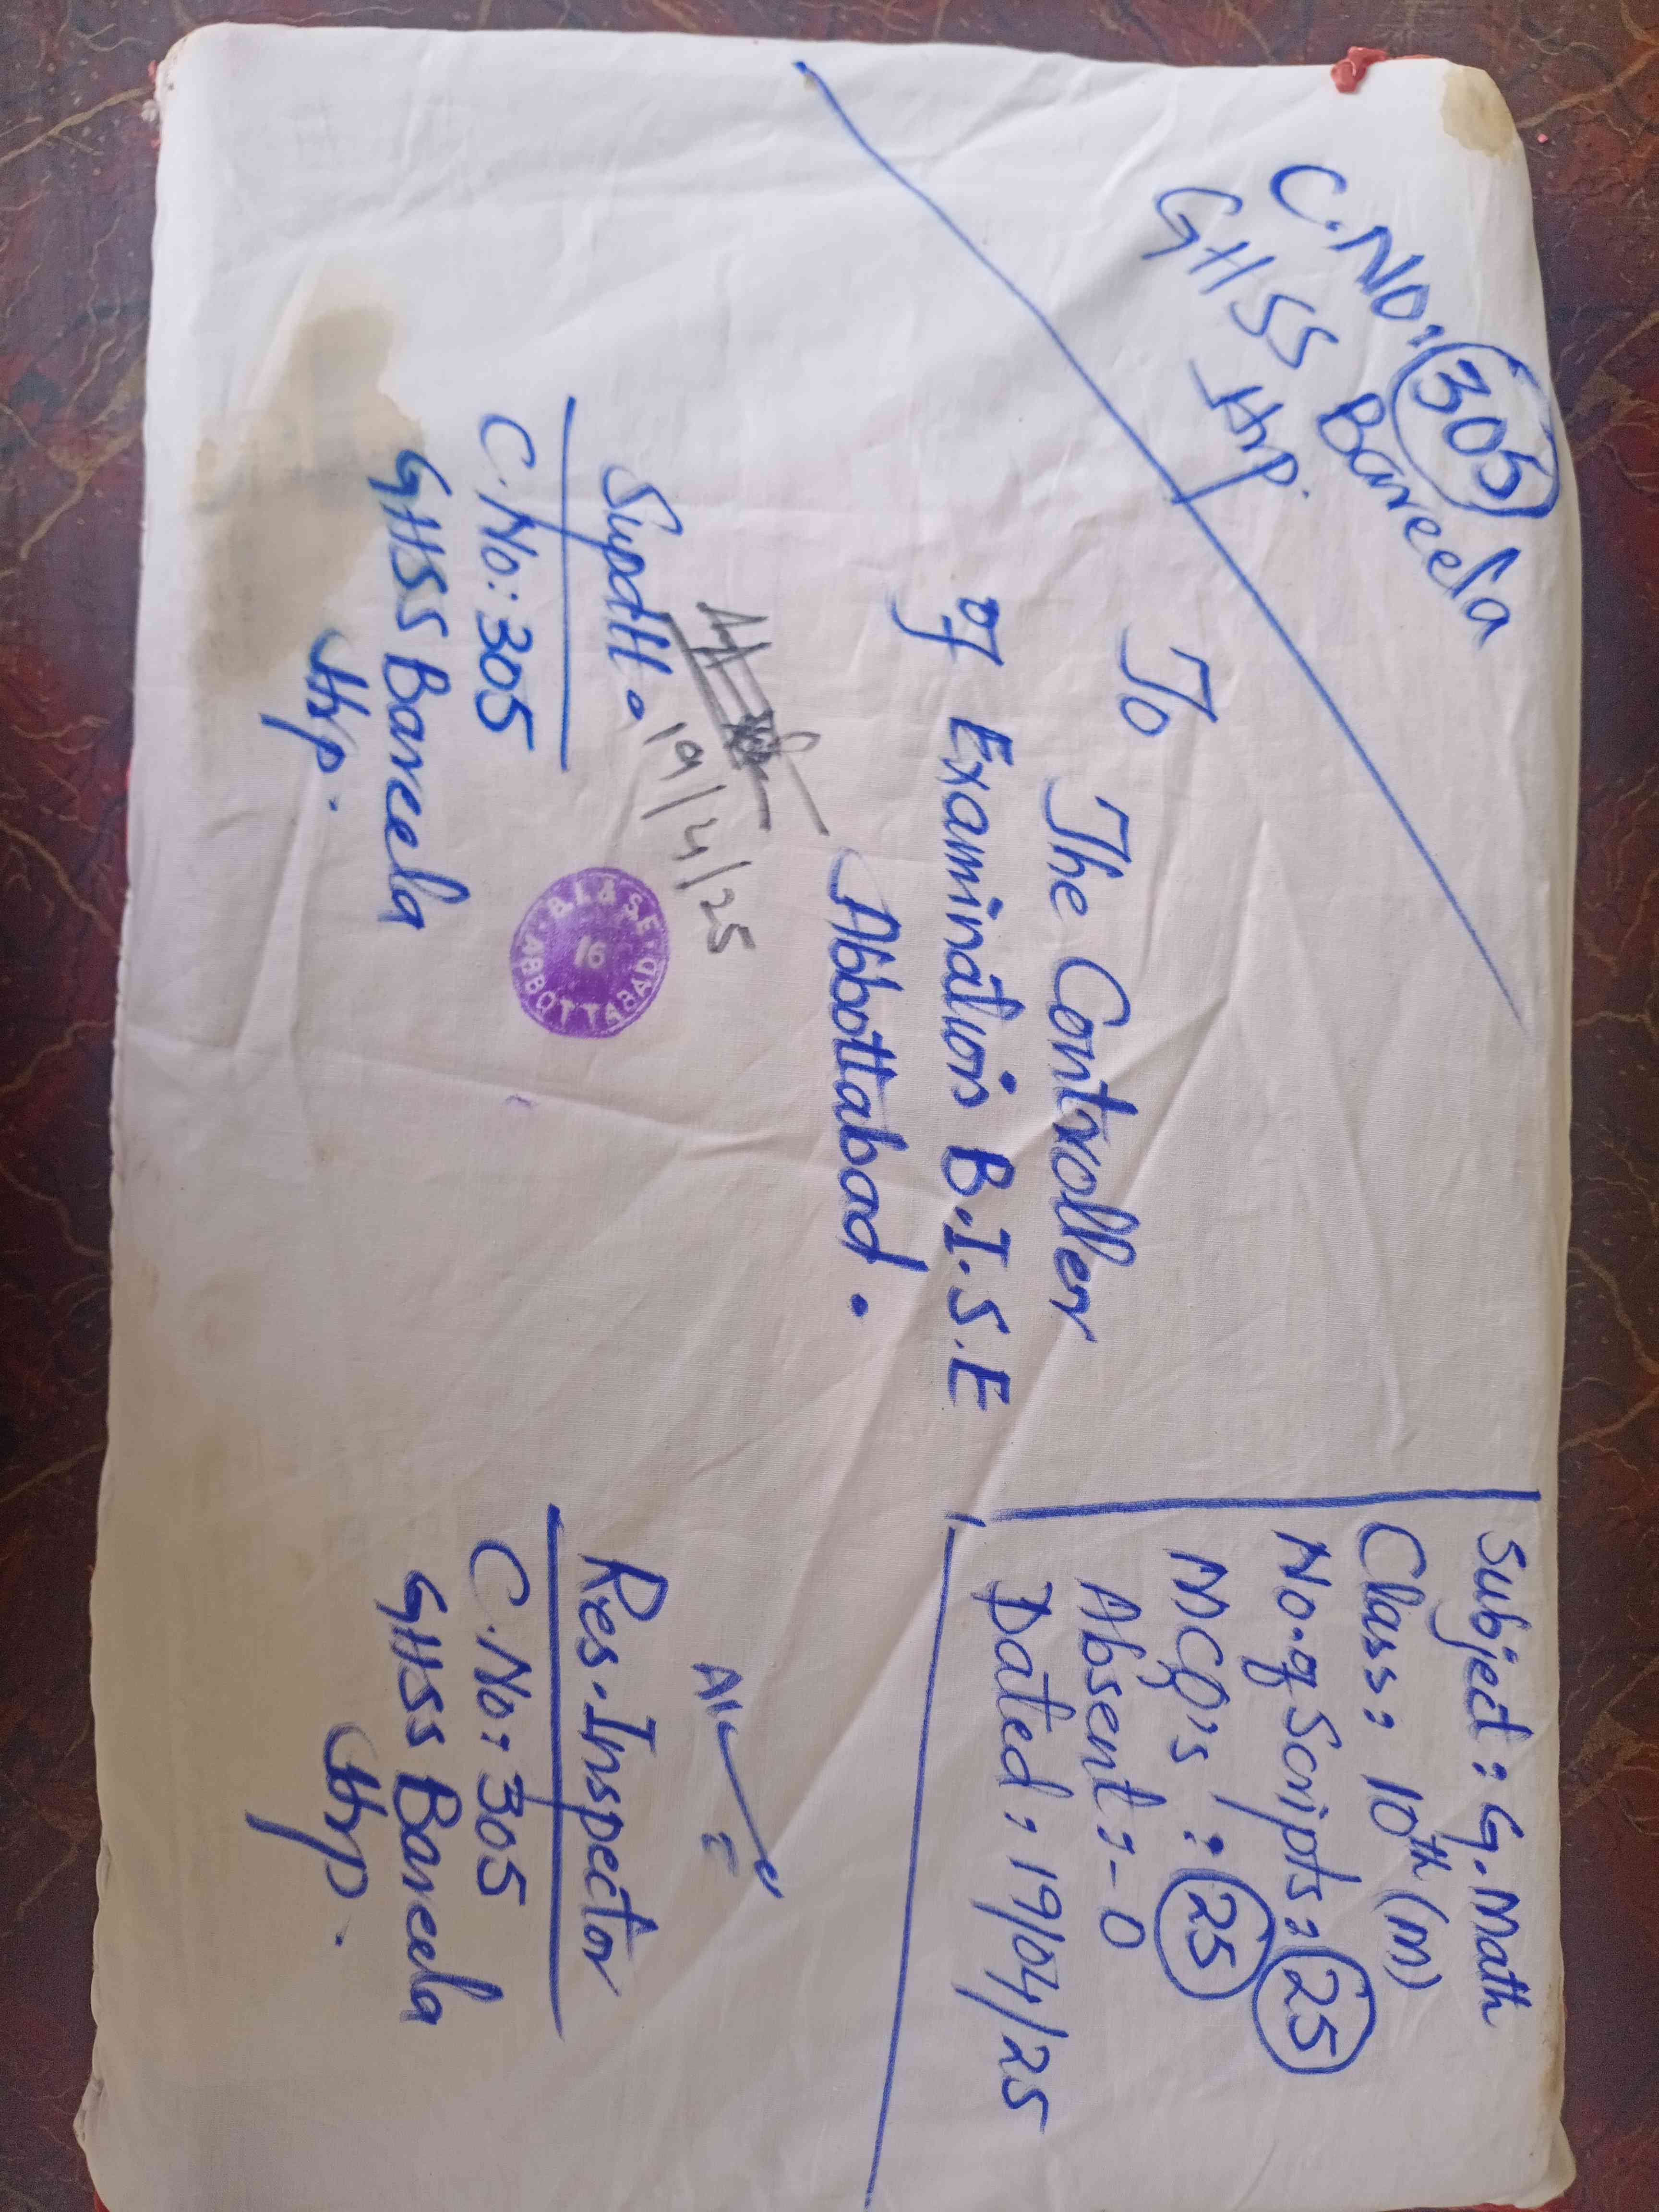 C.No: 305
GHSS Bareela
Hrp.
Subject: G.Math
Class: 10th (M)
No. of Scripts: 25
MCQ's: 25
Absent: - 0
Dated: 19/04/25
To
The Controller
of Examination B.I.S.E
Abbottabad.
19/4/25
Supdtt.
C.No: 305
GHSS Bareela
Hrp.
B.I & S.E.
16
ABBOTTABAD
Res. Inspector
C.No: 305
GHSS Bareela
Hrp.